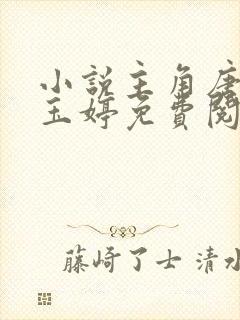 小说主角唐
玉婷免費閱
藤崎了士 清水